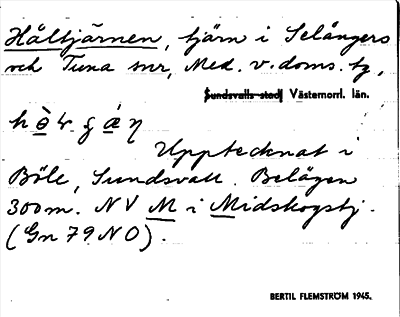 Håltjärnen, tjärn i Selångers
och Tuna snr, Med. v. doms. tg,
Sundsvalls stad, Västernorrl. län.
Upptecknat i
Böle, Sundsvall. Belägen
300 m. NV M i Midskogstj.
(Gn 79 NO).
BERTIL FLEMSTRÖM 1945.